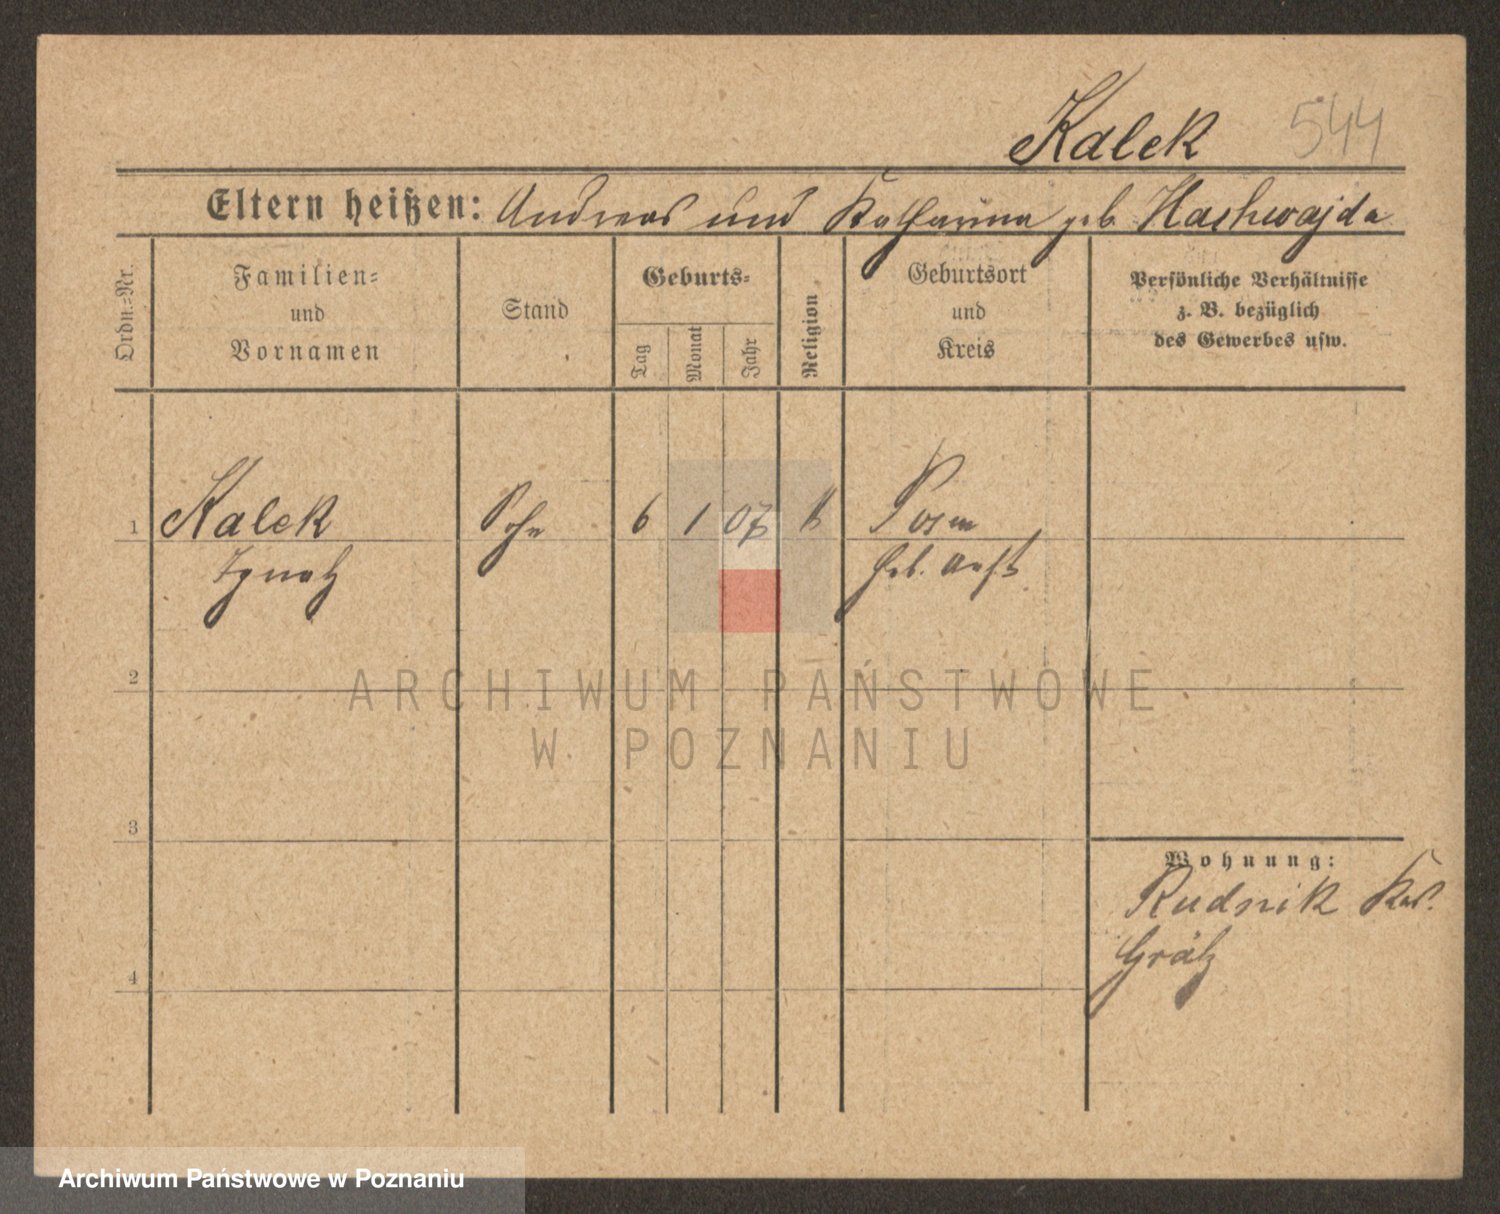 Kalek 544
Eltern heißen: Andreas und Katharina geb. Haschwajda
Ordn.-Nr.
Familien-
und
Vornamen
Stand
Geburts-
Tag
Monat
Jahr
Religion
Geburtsort
und
Kreis
Persönliche Verhältnisse
z. B. bezüglich
des Gewerbes usw.
1 Kalek Sohn 6 1 07 k Posen
Ignatz Geb. Anst.
2
ARCHIWUM PAŃSTWOWE
W POZNANIU
3
Wohnung:
Rudnik
Grätz
4
Archiwum Państwowe w Poznaniu